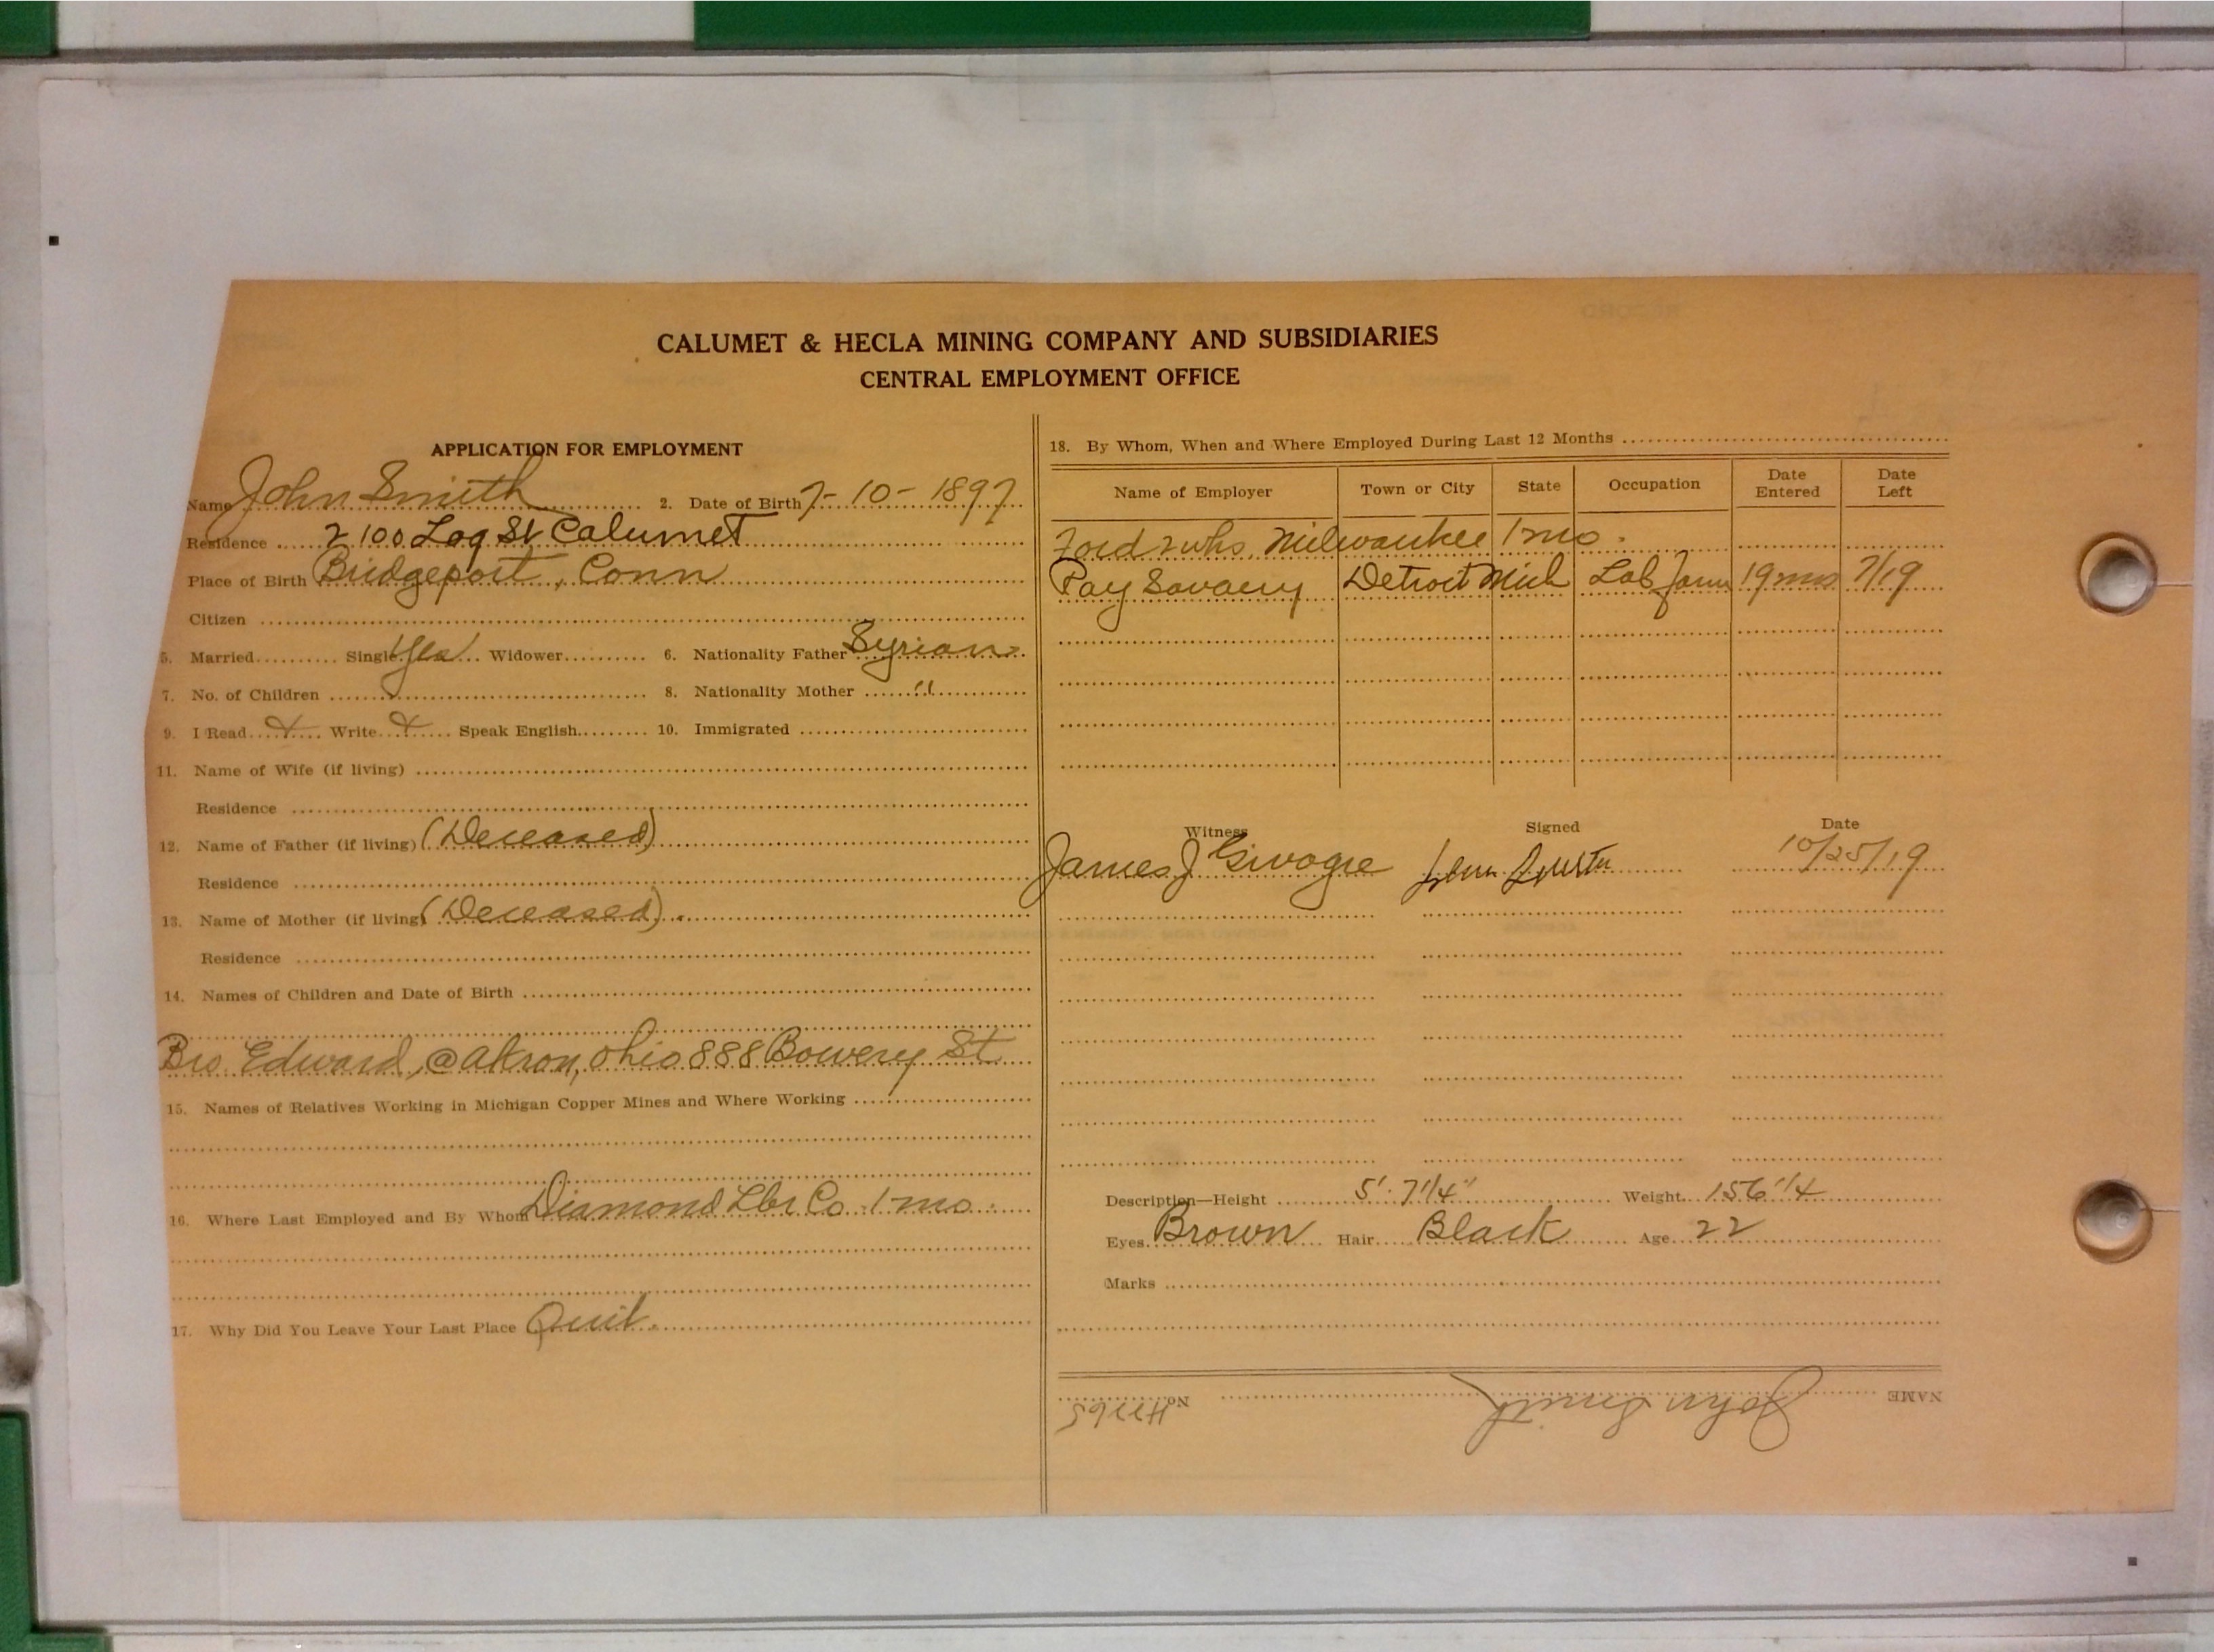 CALUMET & HECLA MINING COMPANY AND SUBSIDIARIES
CENTRAL EMPLOYMENT OFFICE
APPLICATION FOR EMPLOYMENT
Name John Smith 2. Date of Birth 7-10-1897
Residence 2100 Log St Calumet
Place of Birth Bridgeport, Conn
Citizen
5. Married Single Yes Widower 6. Nationality Father Syrian
7. No. of Children 8. Nationality Mother "
9. I Read Write Speak English 10. Immigrated
11. Name of Wife (if living)
Residence
12. Name of Father (if living) (Deceased)
Residence
13. Name of Mother (if living) (Deceased)
Residence
14. Names of Children and Date of Birth
Bro. Edward, @ Akron, Ohio 888 Bowery St
15. Names of Relatives Working in Michigan Copper Mines and Where Working
16. Where Last Employed and By Whom Diamond Lbr Co. 1 mo.
17. Why Did You Leave Your Last Place Quit.
18. By Whom, When and Where Employed During Last 12 Months
Name of Employer Town or City State Occupation Date Entered Date Left
Ford Milwaukee 1 mo.
Detroit Mich Lab 19 mos 7/19
Witness Signed Date
James J John 10/25/19
Description—Height 5' 7 1/4" Weight 156 1/4
Eyes Brown Hair Black Age 22
Marks
NAME John Smith No.